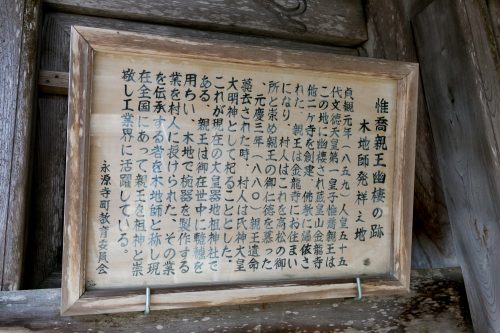 惟喬親王幽棲の跡
木地師発祥之地
貞観元年(八五九)人皇五十五
代文徳天皇第一皇子惟喬親王は
この地に幽棲され筬畳山金龍寺
他二ヶ寺を創建、佛教に帰依さ
れた、親王は金龍寺にお住まい
になり、村人はこれを高松の御
所と崇め親王の御仁徳を慕った
、元慶三年(八八〇)親王遺命
薨去された時、村人は氏神大皇
大明神として杞ることとした、
これが現在の大皇器地祖神社で
ある、親王は御在世中に轆轤を
用ちい、木地で椀器を製作する
業を村人に授けられた、その業
を伝承する者を木地師と称し現
在全国にあって親王を祖神と崇
敬し工業界に活躍している。
永源寺町教育委員会